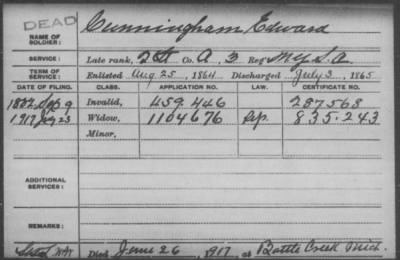 DEAD
NAME OF SOLDIER: Cunningham Edward
SERVICE: Late rank, Co. A, 3 Reg't N.Y. L.A.
TERM OF SERVICE: Enlisted Aug 25, 1864 Discharged July 3, 1865
DATE OF FILING. CLASS. APPLICATION NO. LAW. CERTIFICATE NO.
Invalid, 459.446 287568
1917 Widow, 1104676 835.243
Minor,
ADDITIONAL SERVICES:
REMARKS:
Died June 26, 1917, at Battle Creek Mich.